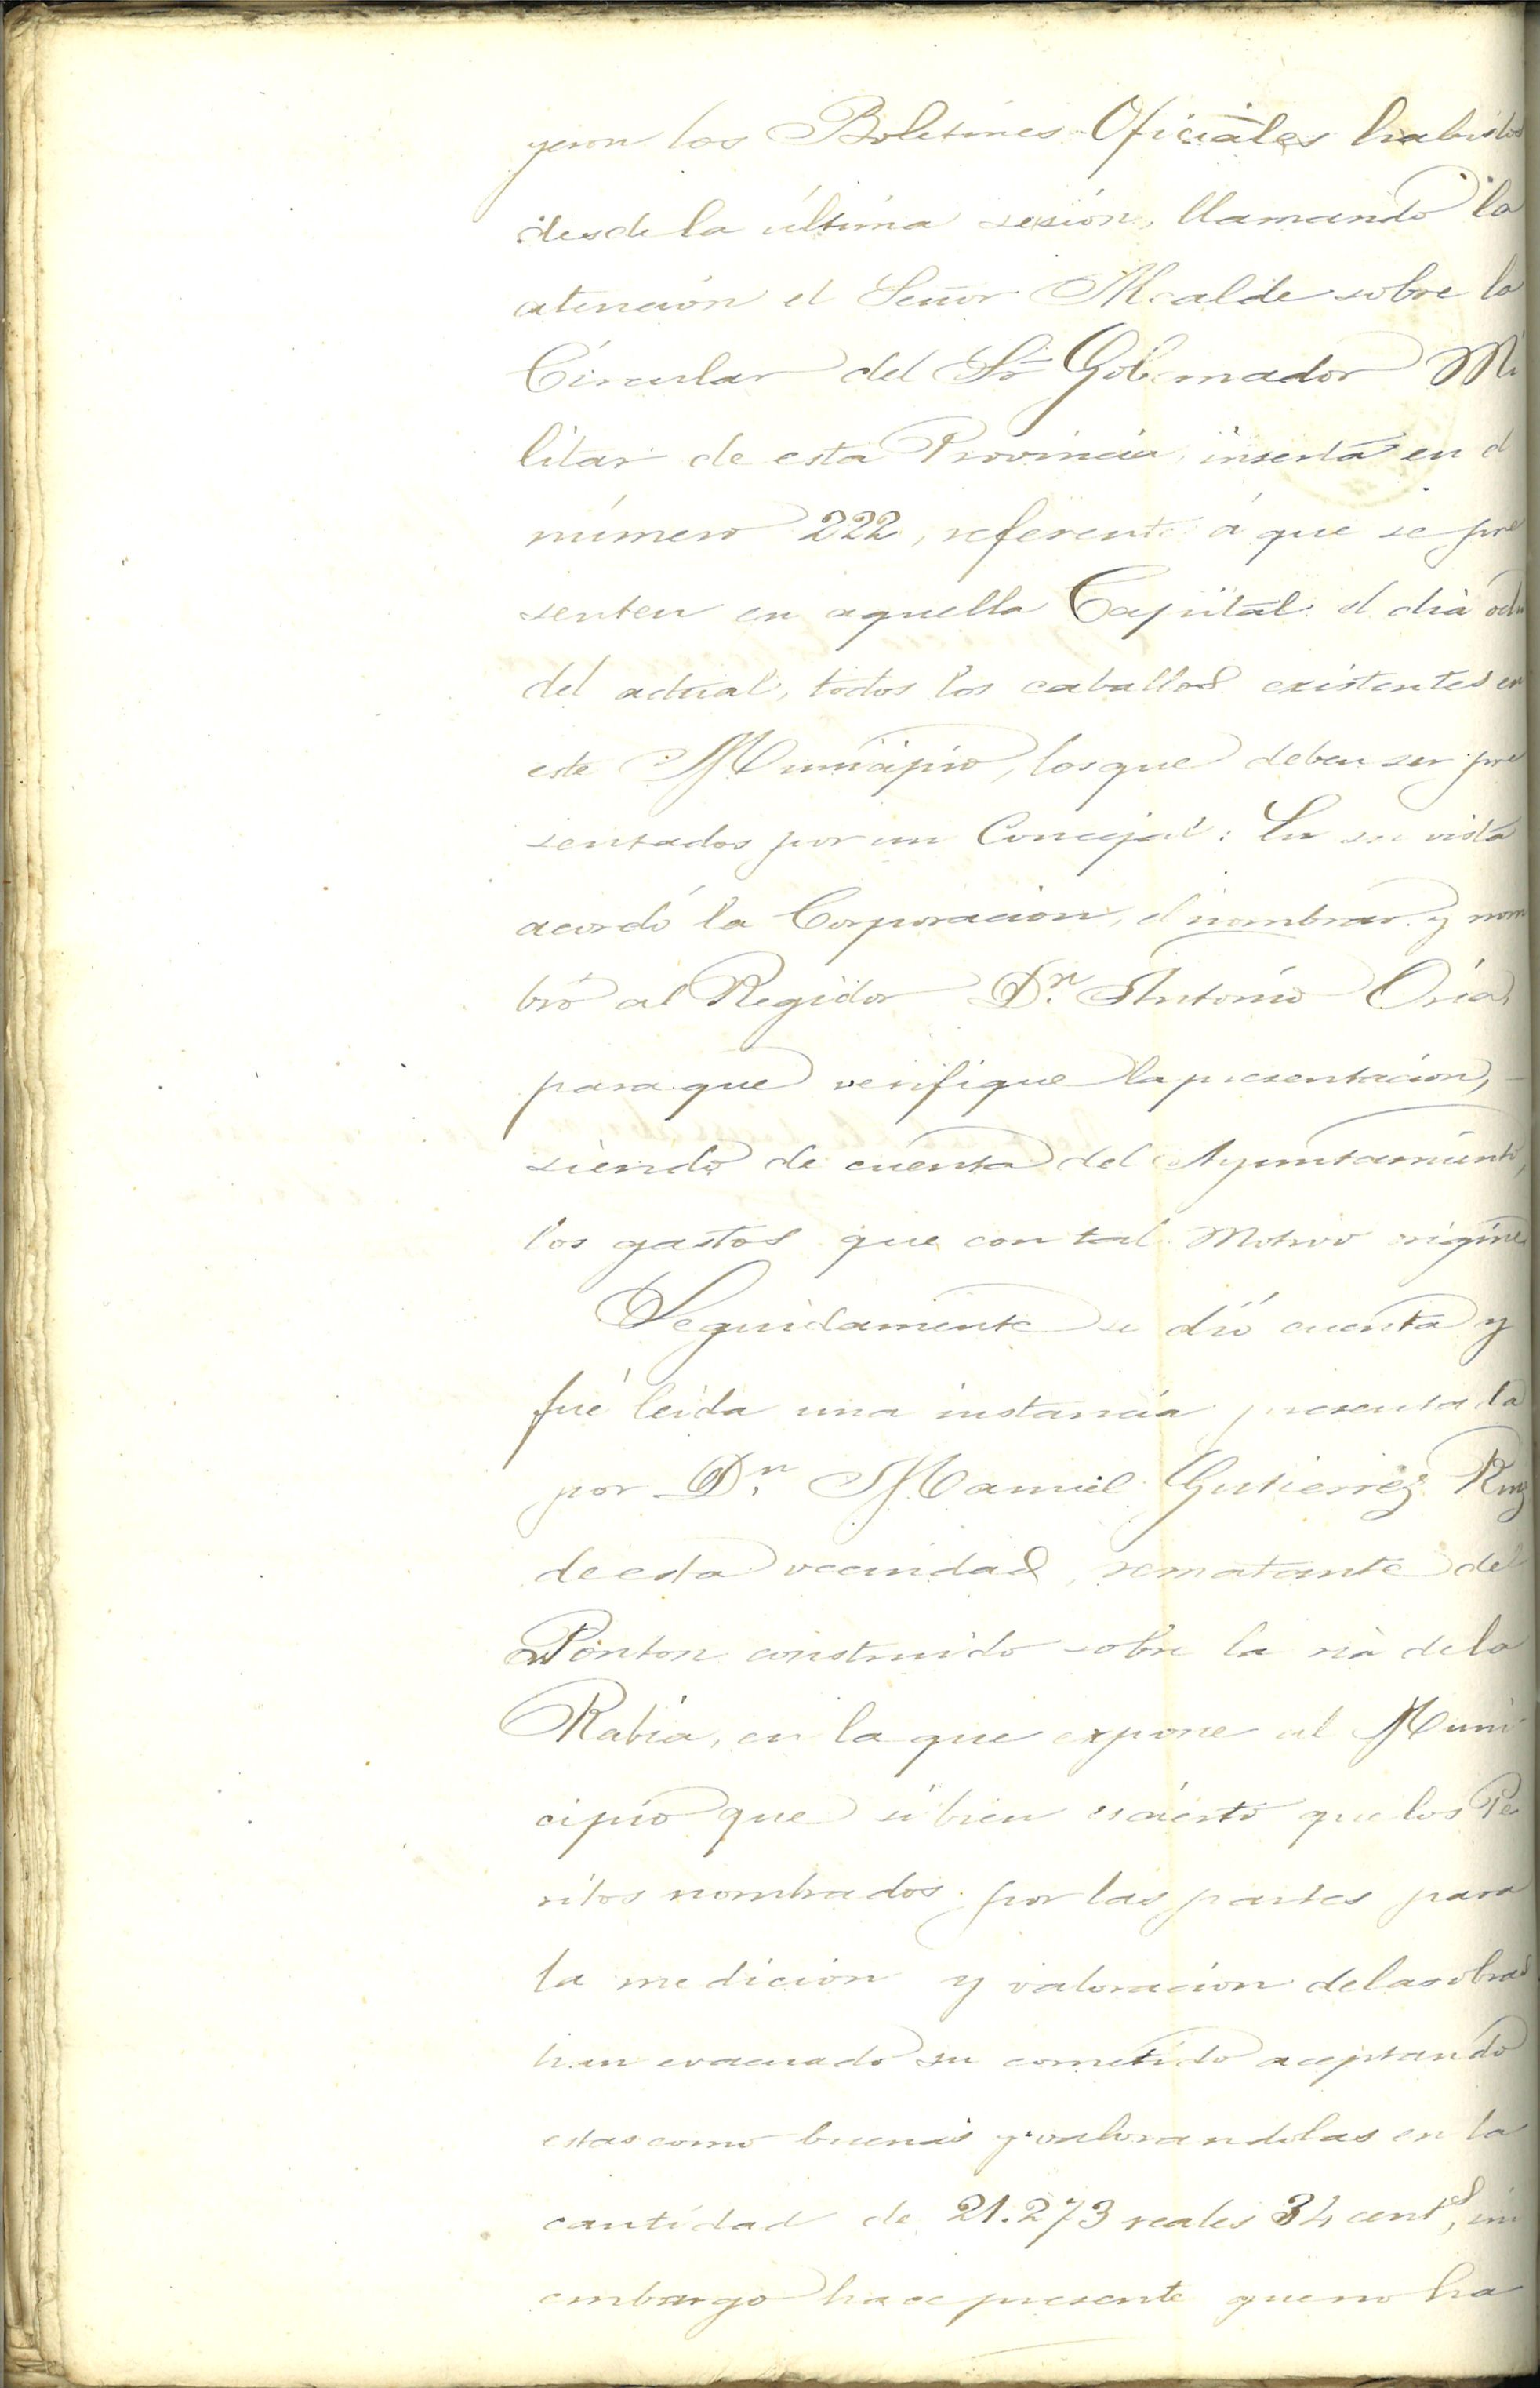 yeron los Boletines Oficiales habidos
desde la última sesión, llamando la
atención el Señor Alcalde sobre la
Circular del Sr Gobernador Mi
litar de esta Provincia, inserta en el
número 222, referente á que se pre
senten en aquella Capital el dia ocho
del actual, todos los caballos existentes en
este Municipio, los que deben ser pre
sentados por un Concejal: En su vista
acordó la Corporación, el nombrar y nom
bró al Regidor Dn. Antonio Oria,
para que verifique la presentación,
siendo de cuenta del Ayuntamiento,
los gastos que con tal motivo origine.
Seguidamente se dió cuenta y
fué leida una instancia presentada
por Dn. Manuel Gutierrez Ruiz
de esta vecindad, rematante del
Ponton construido sobre la ria de la
Rabia, en la que expone al Muni
cipio que si bien es cierto que los Pe
ritos nombrados por las partes para
la medición y valoración de las obras
han evacuado su cometido aceptando
estas como buenas y valorandolas en la
cantidad de 21.273 reales 34 cents, sin
embargo hace presente que no ha